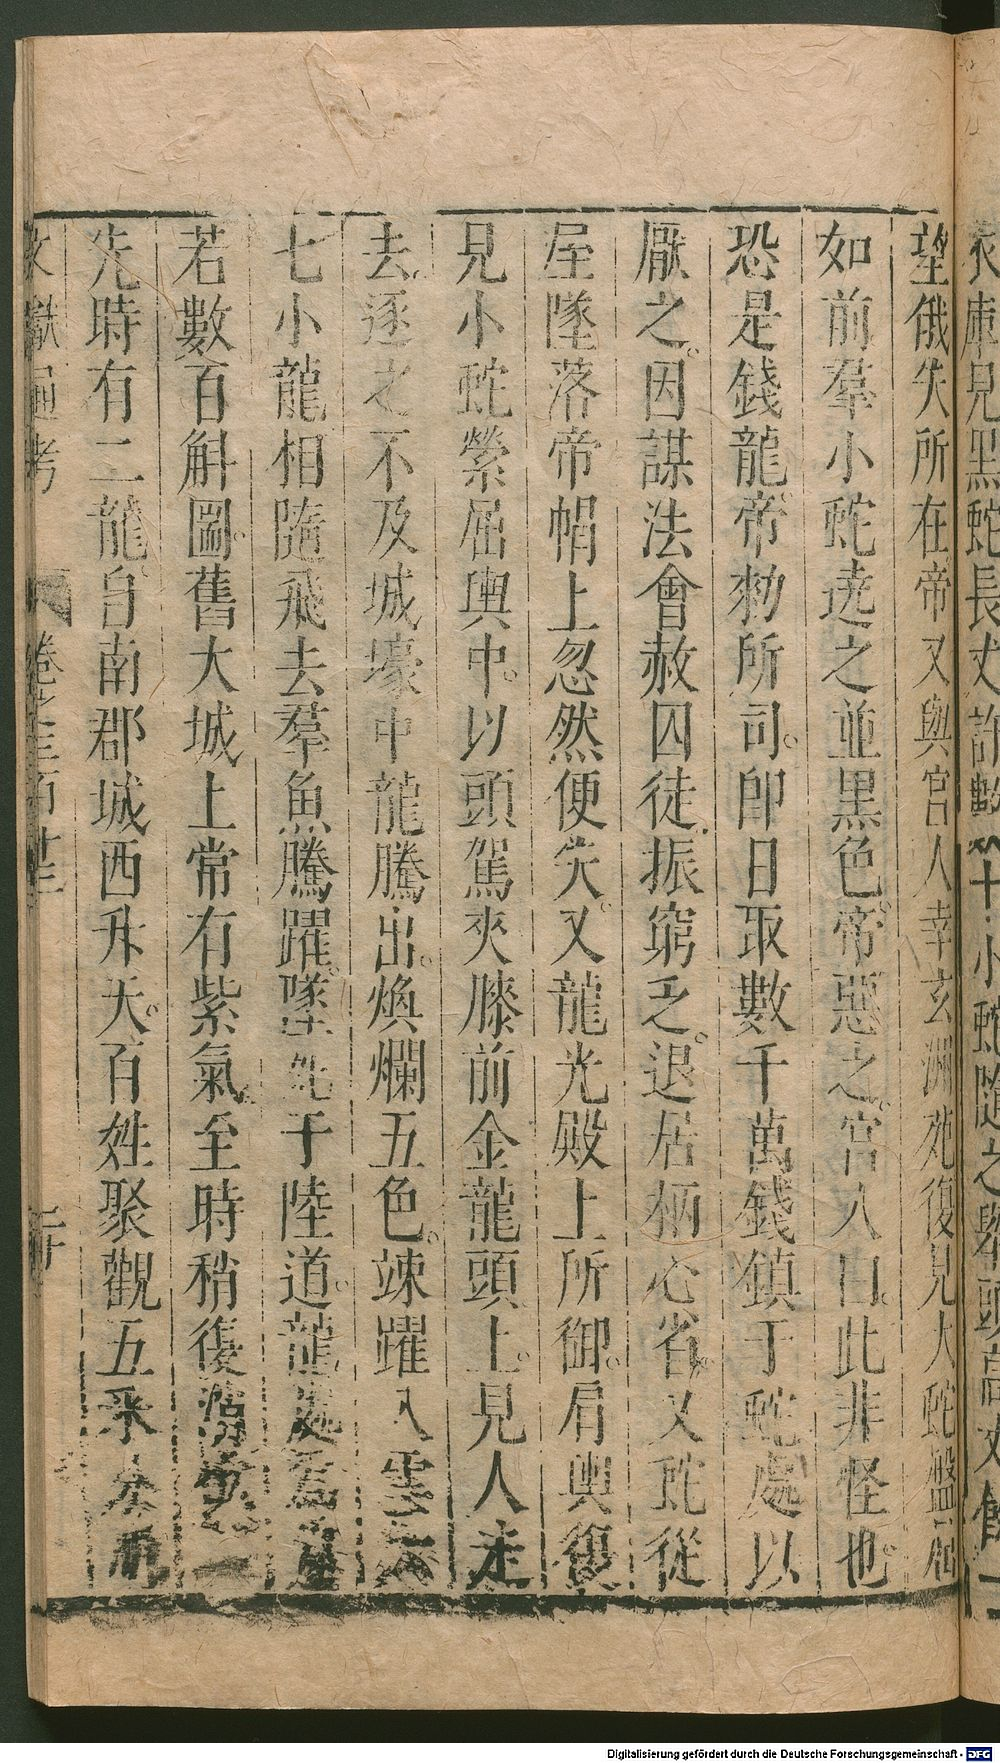 衣庫見黑蛇長丈許數十小蛇隨之舉頭高丈餘
望俄失所在帝又與宮人幸玄洲苑復見大蛇盤屈
如前羣小蛇遶之並黑色帝惡之宮人曰此非怪也
恐是錢龍帝勑所司卽日取數千萬錢鎮于蛇處以
厭之因謀法會赦囚徒振窮乏退居栖心省又蛇從
屋墜落帝帽上忽然便失又龍光殿上所御肩輿復
見小蛇縈屈輿中以頭駕夾膝前金龍頭上見人走
去逐之不及城壕中龍騰出煥爛五色竦躍入雲六
七小龍相隨飛去羣魚騰躍墜死于陸道龍處爲窟
若數百斛圌舊大城上常有紫氣至時稍復消
先時有二龍自南郡城西升天百姓聚觀五采分明
文獻通考 卷之三百十三
Digitalisierung gefördert durch die Deutsche Forschungsgemeinschaft - DFG